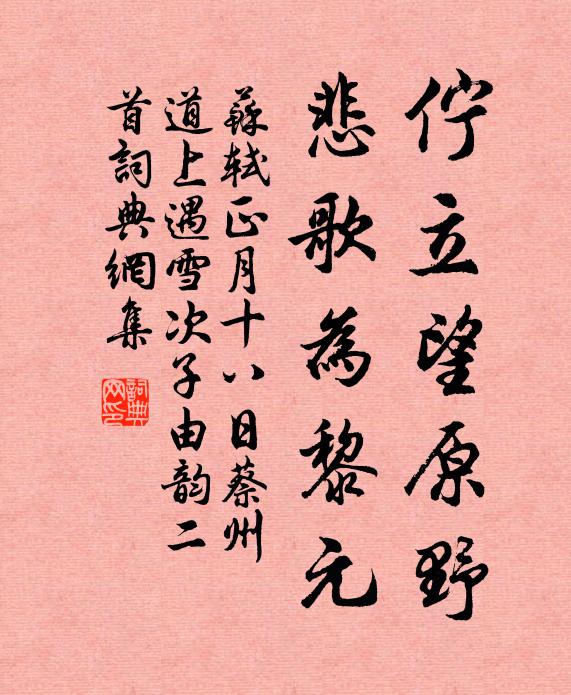 佇立望原野
悲歌為黎元
蘇軾正月十八日蔡州
道上遇雪次子由韵二
首詞典網集
詞典
网印